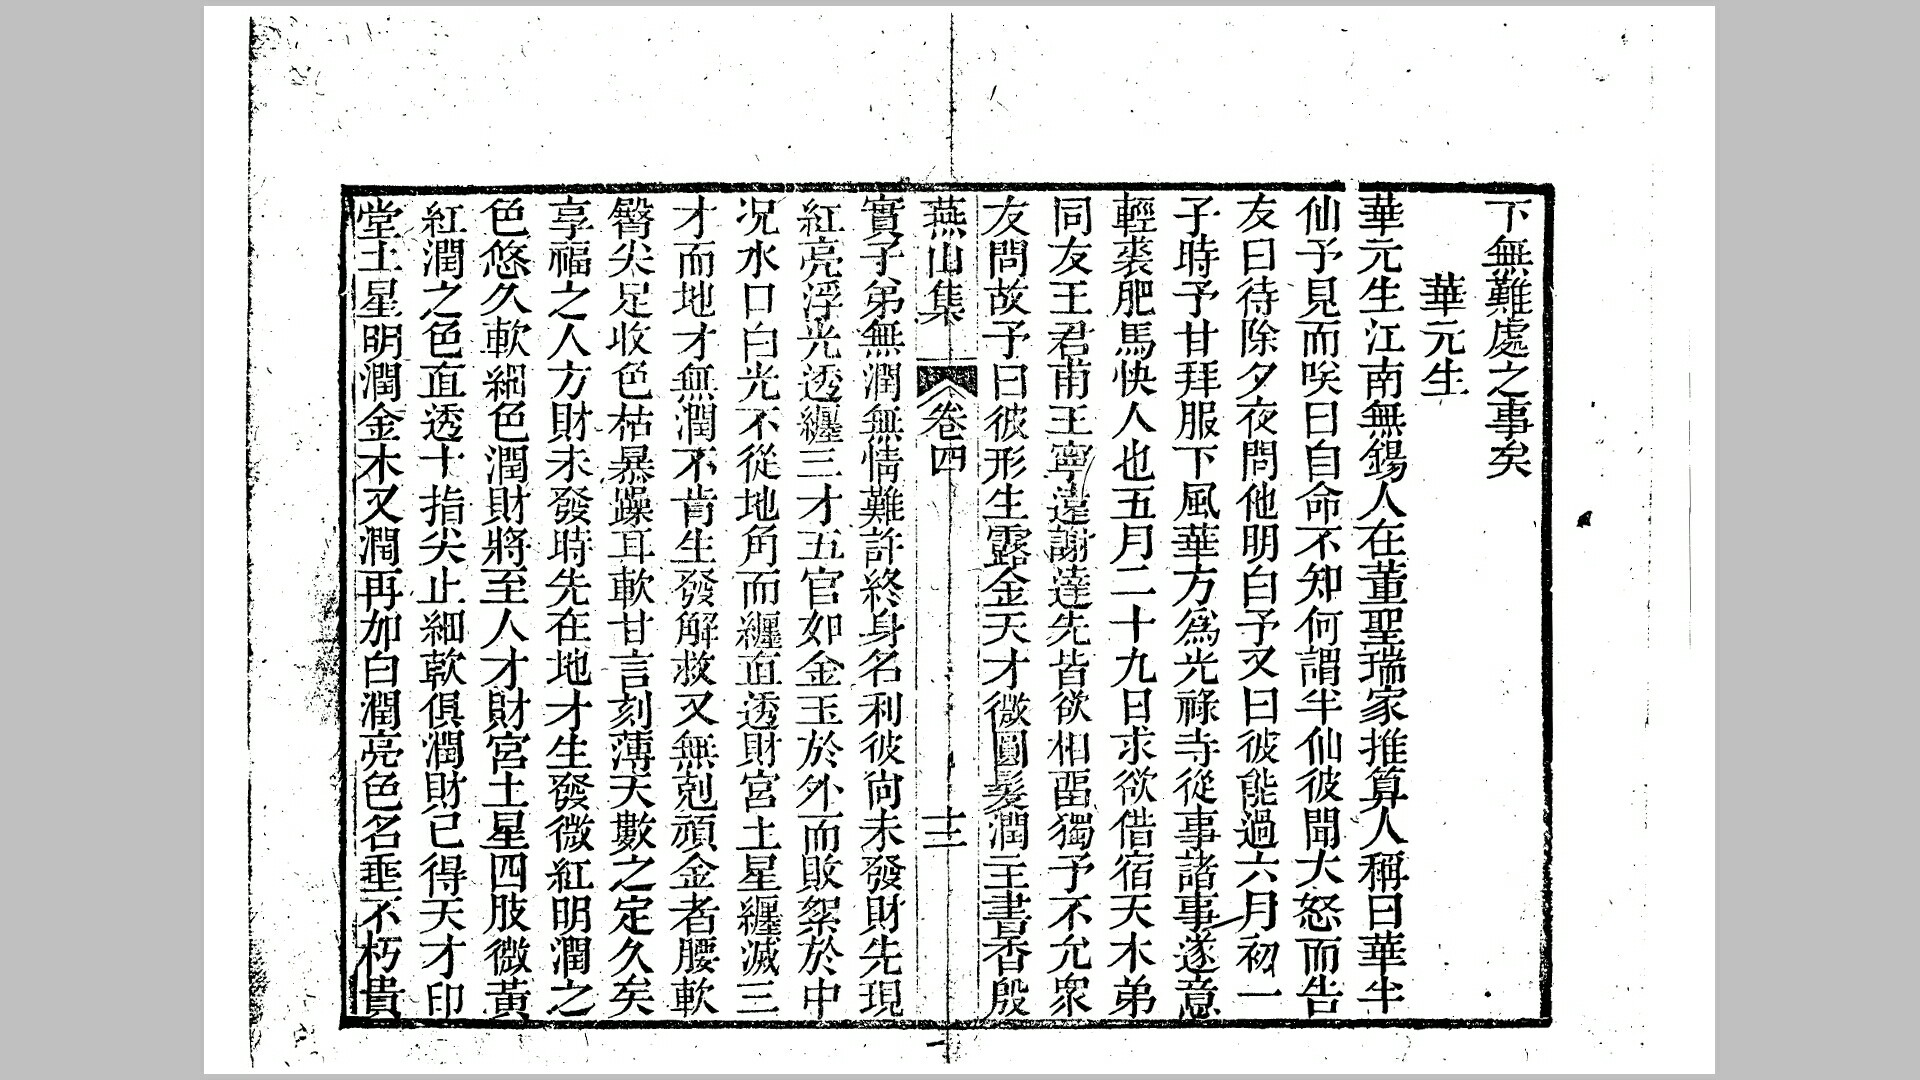 下無難處之事矣
華元生
華元生江南無錫人在董聖瑞家推算人稱曰華半
仙予見而咲曰自命不知何謂半仙彼聞大怒而告
友曰待除夕夜問他明白予又曰彼能過六月初一
子時予甘拜服下風華方為光祿寺從事諸事遂意
輕裘肥馬快人也五月二十九日求欲借宿天木弟
同友王君甫王寧遠謝達先皆欲相畱獨予不允眾
友問故予曰彼形生露金天才微圓髮潤主書香殷
燕山集 卷四 十三
實子弟無潤無情難許終身名利彼尚未發財先現
紅亮浮光透纏三才五官如金玉於外而敗絮於中
况水口白光不從地角而纏直透財宮土星纏滅三
才而地才無潤不肯生發解救又無剋頑金者腰軟
臀尖足收色枯暴躁耳軟甘言刻薄天數之定久矣
享福之人方財未發時先在地才生發微紅明潤之
色悠久軟綢色潤財將至人才財宮土星四肢微黃
紅潤之色直透十指尖止細軟俱潤財已得天才印
堂土星明潤金木又潤再加白潤亮色名垂不朽貴